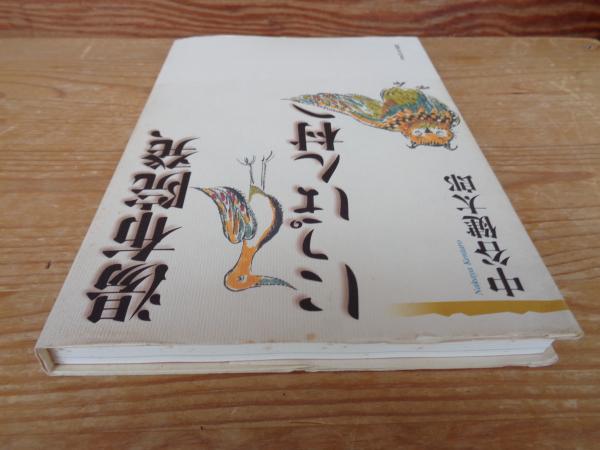 湯布院発、
にっぽん村へ
中谷健太郎
Nakaya Kentaro